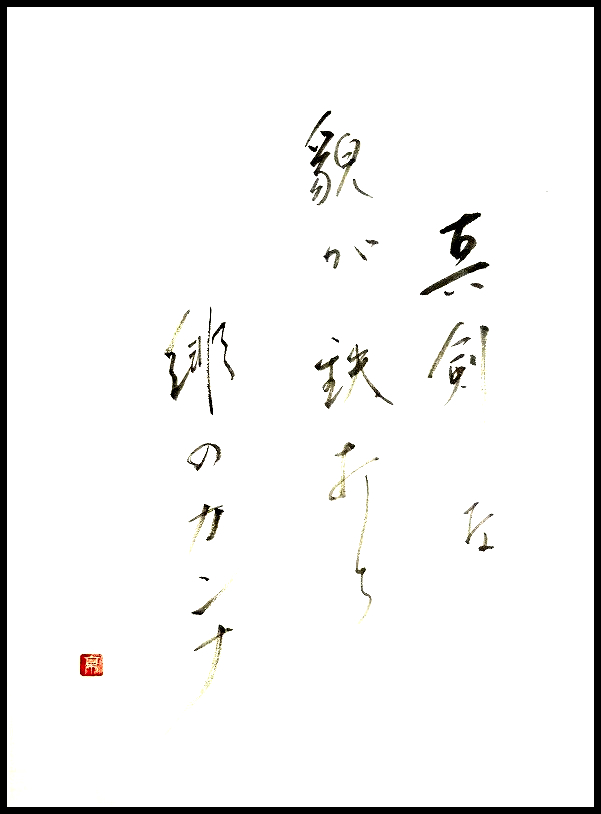 真剣な
貌が鉄打ち
緋のカンナ